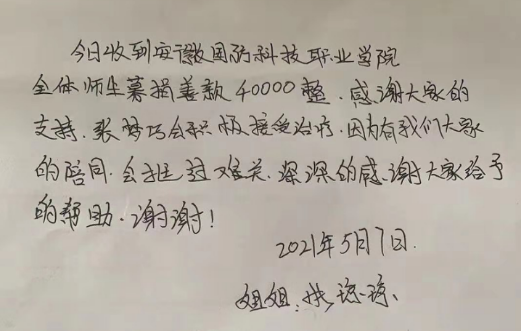 今日收到安徽国防科技职业学院
全体师生募捐善款40000整.感谢大家的
支持.张梦巧会积极接受治疗.因为有我们大家
的陪同.会挺过难关.深深的感谢大家给予
的帮助.谢谢!
2021年5月7日.
姐姐: